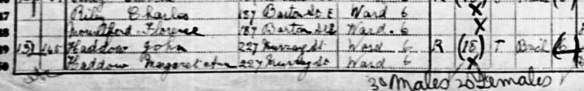 37 Riley Charles 187 Barton St. E Ward 6 X
Florence 187 Barton St E Ward 6 X
39 151 165 Haddow John 227 Murray St Ward 6 R (15) T Brick (6
50 Haddow Margaret Ann 227 Murray St Ward 6 X
30 Males 20 Females